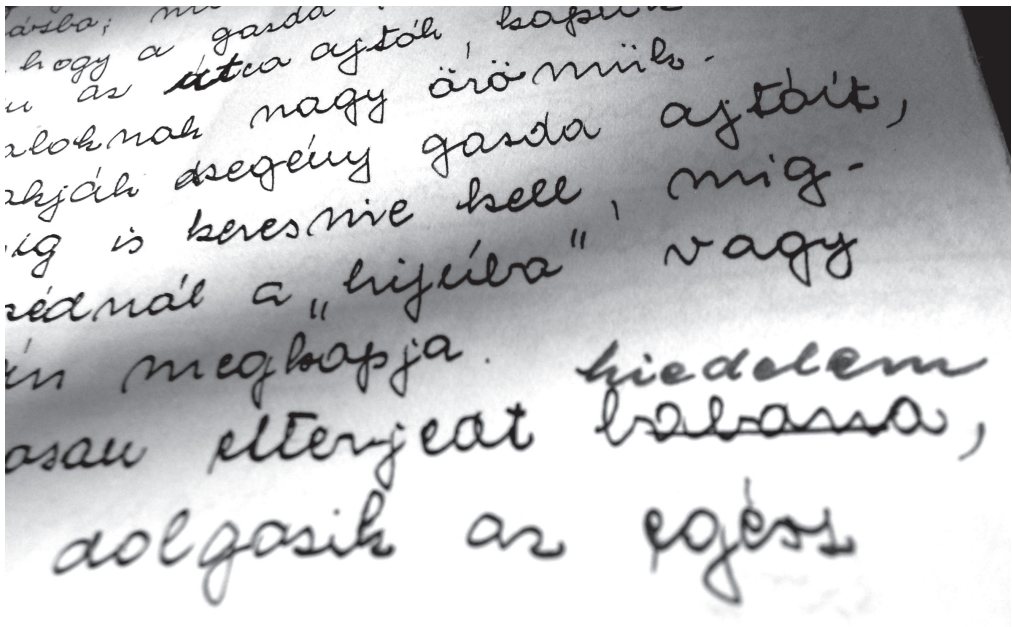 hogy a gazda
az utca ajtók, kapuk
nagy örömük.
szegény gazda ajtóit,
is keresnie kell, mig-
a „hijúba” vagy
megkapja.
kiedelem
elterjedt babona,
dolgozik az egész